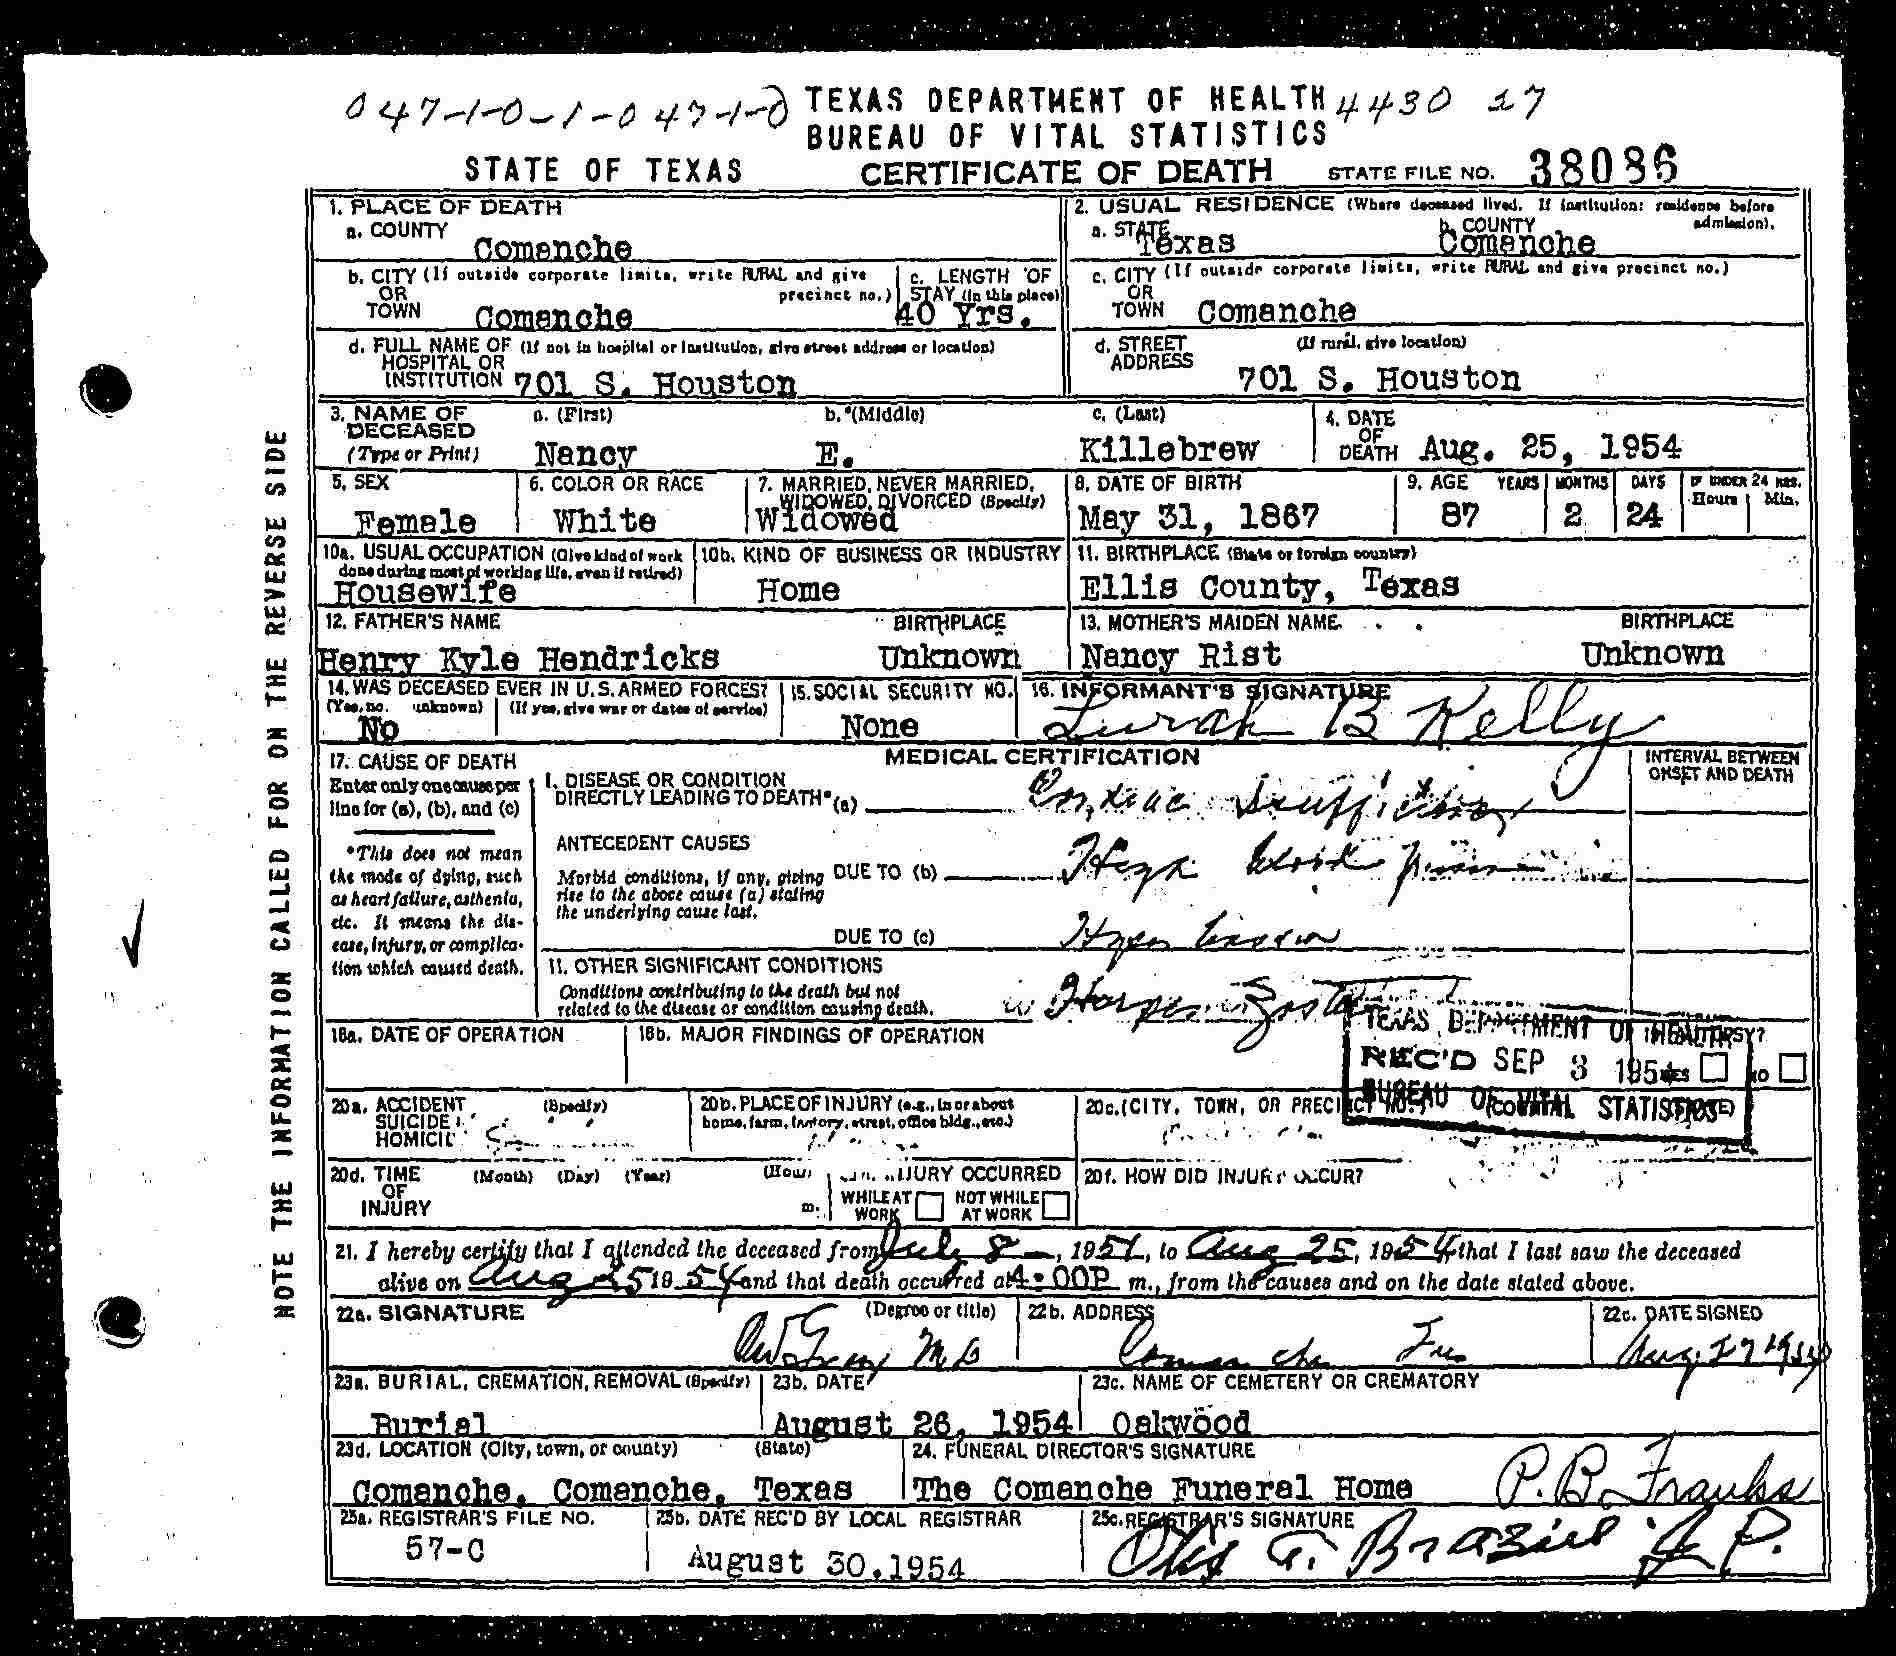 047-1-0-1-0 47-1-0 TEXAS DEPARTMENT OF HEALTH 4430 27
BUREAU OF VITAL STATISTICS
STATE OF TEXAS CERTIFICATE OF DEATH STATE FILE NO. 38086
1. PLACE OF DEATH
a. COUNTY
Comanche
2. USUAL RESIDENCE (Where deceased lived. If institution: residence before admission).
a. STATE Texas b. COUNTY Comanche
b. CITY (If outside corporate limits, write RURAL and give precinct no.)
OR
TOWN Comanche
c. LENGTH OF STAY (in this place)
40 Yrs.
c. CITY (If outside corporate limits, write RURAL and give precinct no.)
OR
TOWN Comanche
d. FULL NAME OF (If not in hospital or institution, give street address or location)
HOSPITAL OR
INSTITUTION 701 S. Houston
d. STREET ADDRESS (If rural, give location)
701 S. Houston
3. NAME OF DECEASED (Type or Print)
a. (First) b. (Middle) c. (Last)
Nancy E. Killebrew
4. DATE OF DEATH Aug. 25, 1954
5. SEX
Female
6. COLOR OR RACE
White
7. MARRIED, NEVER MARRIED, WIDOWED, DIVORCED (Specify)
Widowed
8. DATE OF BIRTH
May 31, 1867
9. AGE YEARS MONTHS DAYS IF UNDER 24 HRS. Hours Min.
87 2 24
10a. USUAL OCCUPATION (Give kind of work done during most of working life, even if retired)
Housewife
10b. KIND OF BUSINESS OR INDUSTRY
Home
11. BIRTHPLACE (State or foreign country)
Ellis County, Texas
12. FATHER'S NAME BIRTHPLACE
Henry Kyle Hendricks Unknown
13. MOTHER'S MAIDEN NAME BIRTHPLACE
Nancy Rist Unknown
14. WAS DECEASED EVER IN U.S. ARMED FORCES?
(Yes, no, unknown) (If yes, give war or dates of service)
No
15. SOCIAL SECURITY NO.
None
16. INFORMANT'S SIGNATURE
Lurah B Kelly
17. CAUSE OF DEATH
Enter only one cause per
line for (a), (b), and (c)
*This does not mean
the mode of dying, such
as heart failure, asthenia,
etc. It means the dis-
ease, injury, or complica-
tion which caused death.
MEDICAL CERTIFICATION
INTERVAL BETWEEN ONSET AND DEATH
I. DISEASE OR CONDITION
DIRECTLY LEADING TO DEATH* (a)
ANTECEDENT CAUSES
Morbid conditions, if any, giving
rise to the above cause (a) stating
the underlying cause last.
DUE TO (b) High blood
DUE TO (c)
11. OTHER SIGNIFICANT CONDITIONS
Conditions contributing to the death but not
related to the disease or condition causing death.
18a. DATE OF OPERATION
18b. MAJOR FINDINGS OF OPERATION
AUTOPSY?
YES NO
TEXAS DEPARTMENT OF HEALTH
REC'D SEP 3 1954
BUREAU OF VITAL STATISTICS
20a. ACCIDENT (Specify)
SUICIDE
20b. PLACE OF INJURY (e.g., in or about
home, farm, factory, street, office bldg., etc.)
20c. (CITY, TOWN, OR PRECINCT NO.) (COUNTY) (STATE)
20d. TIME OF INJURY
(Month) (Day) (Year) (Hour) m.
INJURY OCCURRED
WHILE AT WORK NOT WHILE AT WORK
20f. HOW DID INJURY OCCUR?
21. I hereby certify that I attended the deceased from July 8, 1951, to Aug 25, 1954 that I last saw the deceased
alive on Aug 25 1954 and that death occurred at 4:00P m., from the causes and on the date stated above.
22a. SIGNATURE (Degree or title)
MD
22b. ADDRESS
Comanche
22c. DATE SIGNED
Aug. 27 1954
23a. BURIAL, CREMATION, REMOVAL (Specify)
Burial
23b. DATE
August 26, 1954
23c. NAME OF CEMETERY OR CREMATORY
Oakwood
23d. LOCATION (City, town, or county) (State)
Comanche, Comanche, Texas
24. FUNERAL DIRECTOR'S SIGNATURE
The Comanche Funeral Home P.B. Franks
25a. REGISTRAR'S FILE NO.
57-C
25b. DATE REC'D BY LOCAL REGISTRAR
August 30, 1954
25c. REGISTRAR'S SIGNATURE
NOTE THE INFORMATION CALLED FOR ON THE REVERSE SIDE